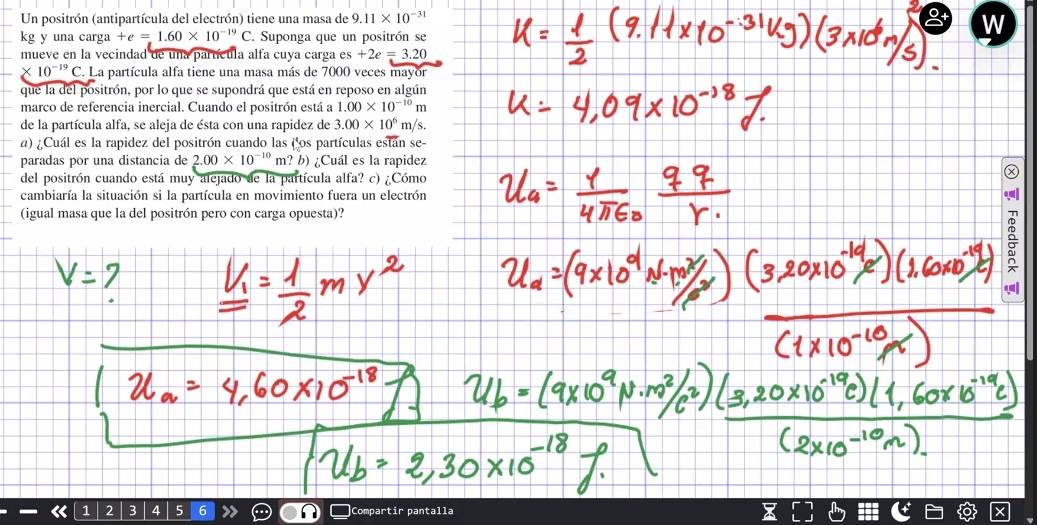 Un positrón (antipartícula del electrón) tiene una masa de 9.11 × 10⁻³¹
kg y una carga +e = 1.60 × 10⁻¹⁹ C. Suponga que un positrón se
mueve en la vecindad de una partícula alfa cuya carga es +2e = 3.20
× 10⁻¹⁹ C. La partícula alfa tiene una masa más de 7000 veces mayor
que la del positrón, por lo que se supondrá que está en reposo en algún
marco de referencia inercial. Cuando el positrón está a 1.00 × 10⁻¹⁰ m
de la partícula alfa, se aleja de ésta con una rapidez de 3.00 × 10⁶ m/s.
a) ¿Cuál es la rapidez del positrón cuando las dos partículas están se-
paradas por una distancia de 2.00 × 10⁻¹⁰ m? b) ¿Cuál es la rapidez
del positrón cuando está muy alejado de la partícula alfa? c) ¿Cómo
cambiaría la situación si la partícula en movimiento fuera un electrón
(igual masa que la del positrón pero con carga opuesta)?
K = 1/2 (9.11x10⁻³¹kg)(3x10⁶m/s)².
K = 4,09x10⁻¹⁸ J.
Ua = 1/4πε₀ qq/r.
V=?
K₁ = 1/2 m v²
Ua = (9x10⁹ N·m²/c²) (3,20x10⁻¹⁹c)(1.60x10⁻¹⁹c)/(1x10⁻¹⁰m)
Ua = 4,60x10⁻¹⁸ J
Ub = (9x10⁹N·m²/c²)(3,20x10⁻¹⁹c)(1,60x10⁻¹⁹c)/(2x10⁻¹⁰m).
Ub = 2,30x10⁻¹⁸ J.
W
Feedback
1 2 3 4 5 6
Compartir pantalla